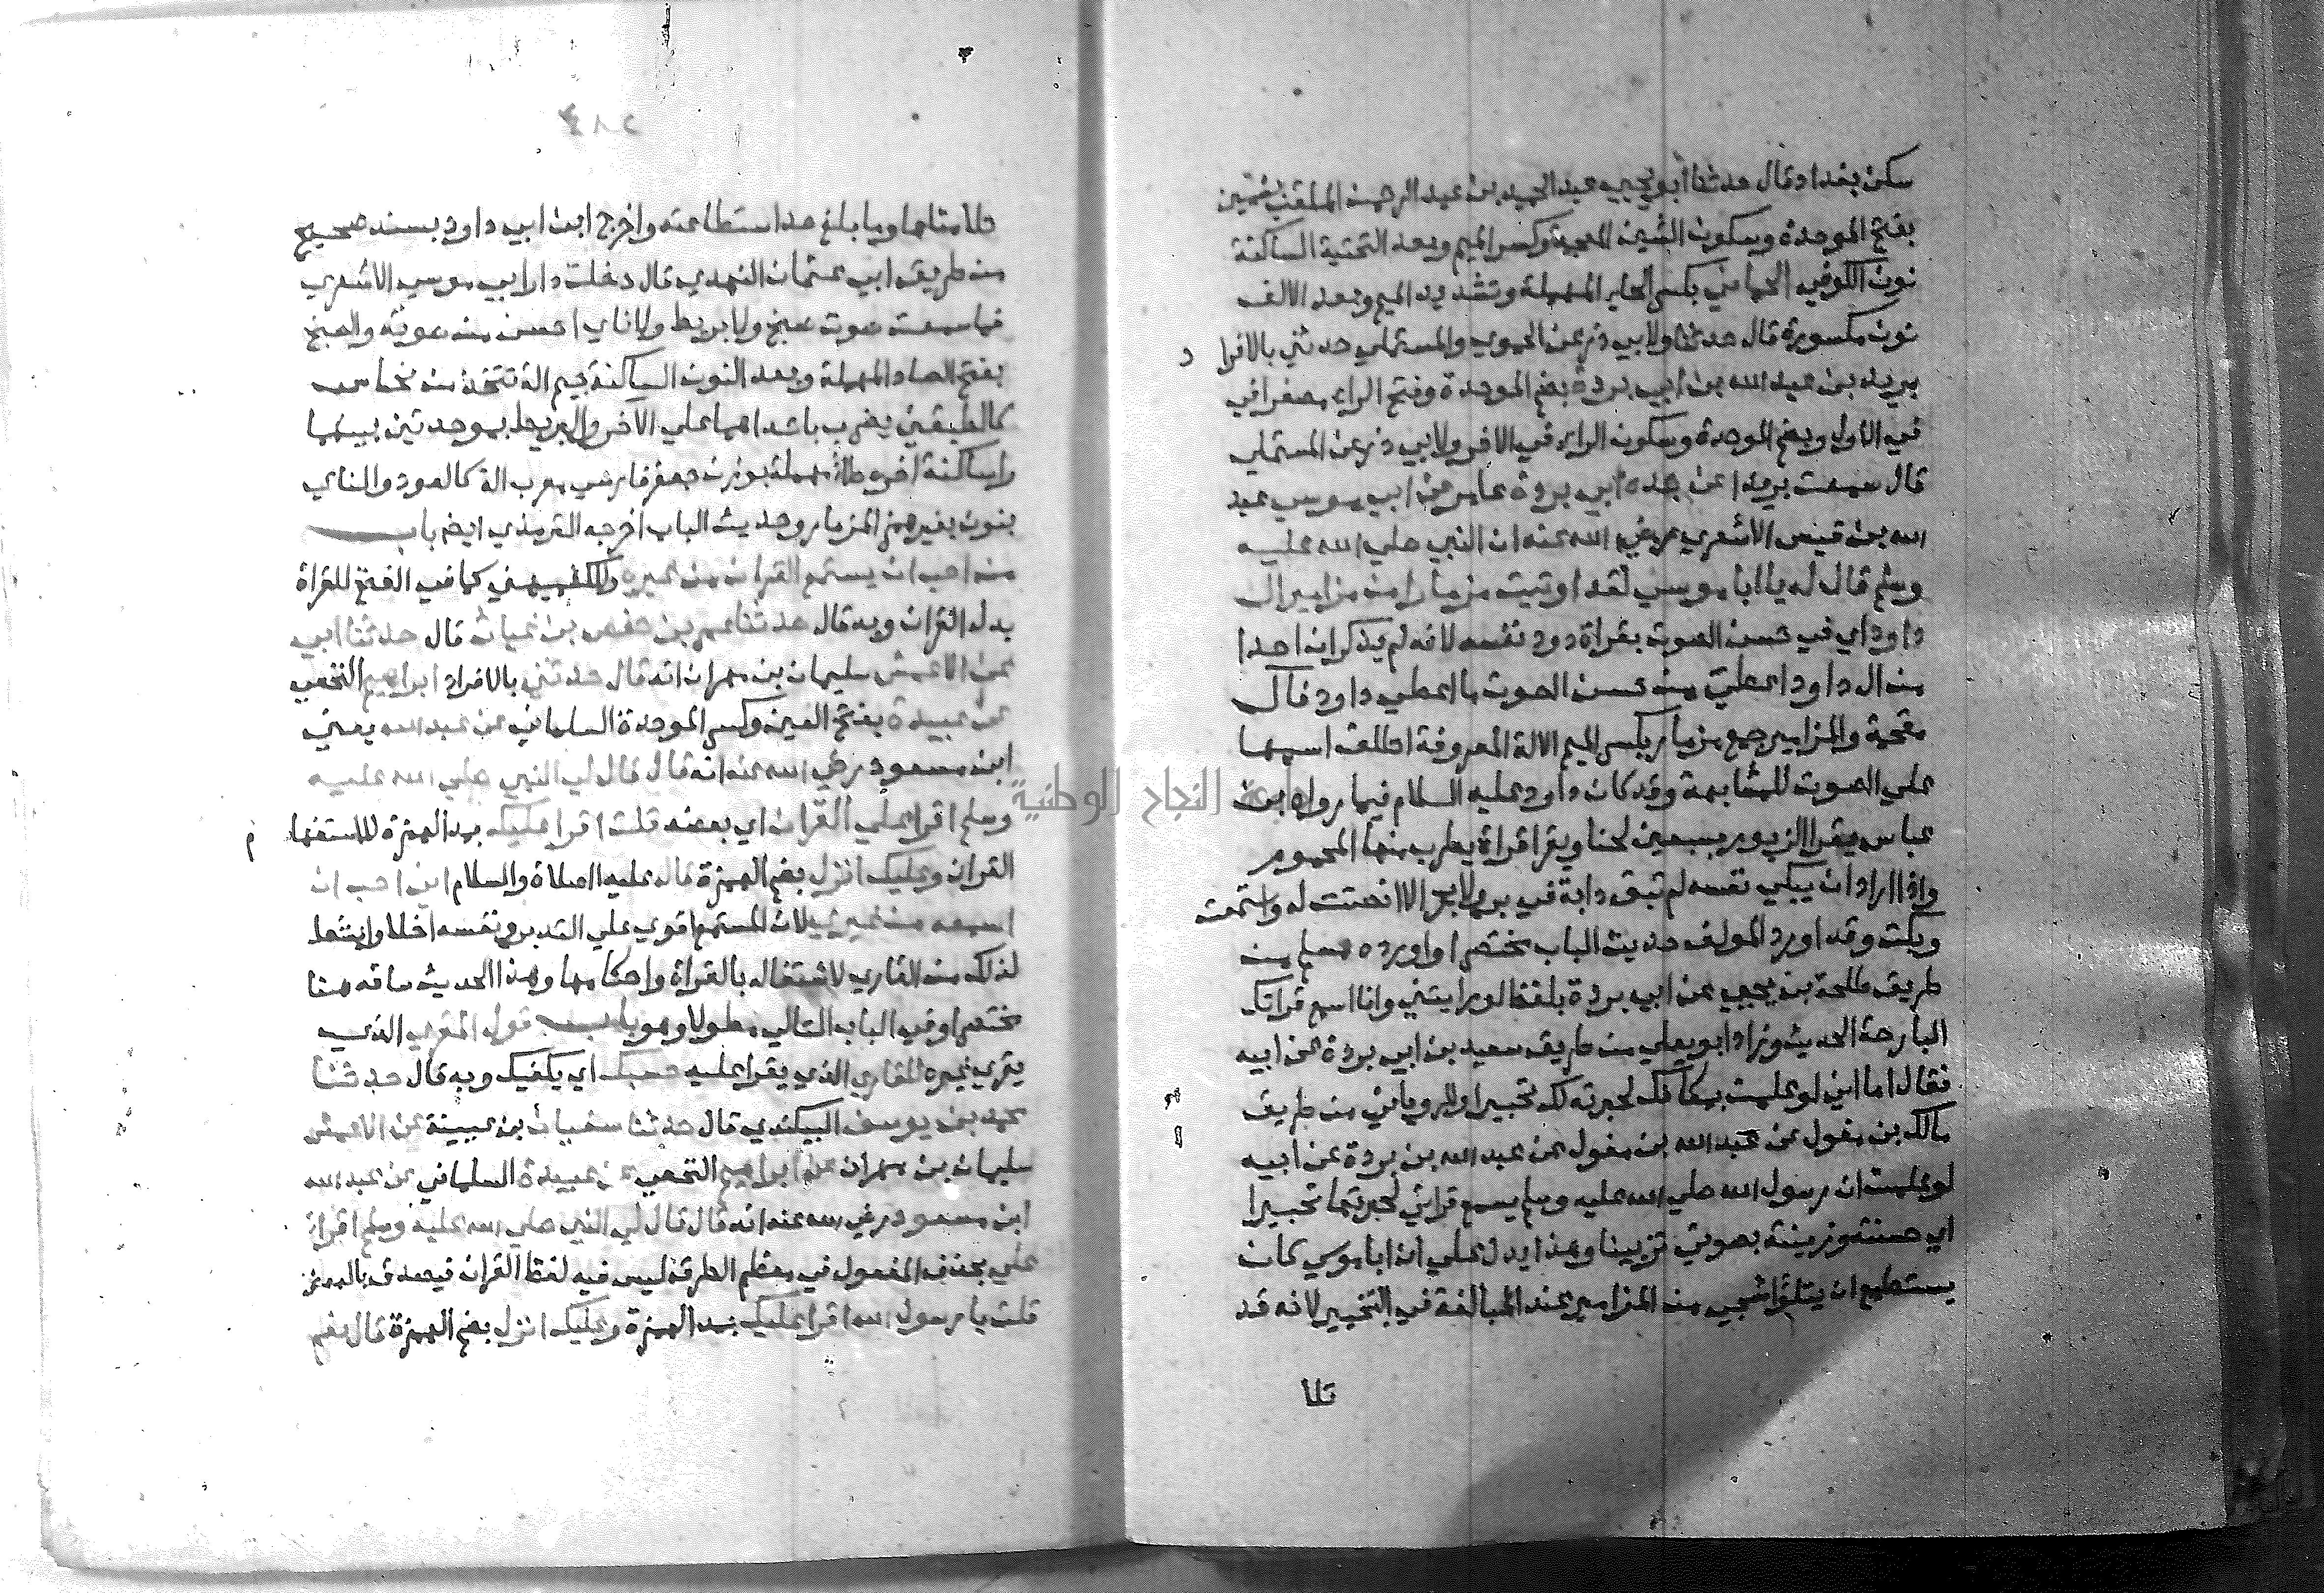 سكن بغداد قال حدثنا أبو يحيى عبد الحميد بن عبد الرحمن الملقب بشمين
بفتح الموحدة وسكون الشين المعجمة وكسر الميم وبعد التحتية الساكنة
نون الكوفي الحماني بكسر الحاء المهملة وتشديد الميم وبعد الالف
نون مكسورة قال حدثنا ولابي ذر عن الحموي والمستملي حدثني بالافرا د
بريد بن عبد الله بن أبي بردة بضم الموحدة وفتح الراء مصغرا في
في الاول وبضم الموحدة وسكون الراء في الاخر ولابي ذر عن المستملي
قال سمعت بريدا عن جده أبي بردة عامر عن ابي موسى عبد
الله بن قيس الاشعري رضي الله عنه ان النبي صلي الله عليه
وسلم قال له يا ابا موسي لقد اوتيت مزمارا من مزامير ال
داود اي في حسن الصوت بقراة دود نفسه لانه لم يذكر ان احدا
من ال داود اعطي من حسن الصوت ما اعطي داود فال
مقحمة والمزامير جمع مزمار بكسر الميم الالة المعروفة اطلق اسمها
علي الصوت للمشابهة وقد كان داود عليه السلام فيما رواه ابن
عباس يقرا الزبور بسبعين لحنا ويقرا قراة يطرب منها المحموم
واذا اراد ان يبكي نفسه لم تبق دابة في بر ولا بحر الا انصتت له واستمعت
وبكت وقد اورد المولف حديث الباب مختصرا واورده مسلم من
طريق طلحة بن يحيي عن ابي بردة بلفظ لو رايتني وانا اسمع قراتك
البارحة الحديث وزاد ابو يعلي من طريق سعيد بن ابي بردة عن ابيه
فقال اما اني لو علمت بمكانك لحبرته لك تحبيرا وللروياني من طريق
مالك بن مغول عن عبد الله بن مغول عن عبد الله بن بردة عن ابيه
لو علمت ان رسول الله صلي الله عليه وسلم يسمع قراتي لحبرتها تحبيرا
اي حسنته وزينته بصوتي تزيينا وهذا يدل علي ان ابا موسي كان
يستطيع ان يتلو اشجي من المزامير عند المبالغة في التحبير لانه قد
تلا
٤٨٢
تلا مثلها وما بلغ حد استطاعته واخرج ابن ابي داود بسند صحيح
من طريق ابي عثمان النهدي قال دخلت دار ابي موسي الاشعري
فما سمعت صوت صنج ولا بربط ولا ناي احسن من صوته والصنج
بفتح الصاد المهملة وبعد النون الساكنة جيم الة تتخذ من نحاس
كالطبقين يضرب باحداهما علي الاخر والبربط بموحدتين بينهما
را ساكنة اخره طا مهملة بوزن جعفر فارسي معرب الة كالعود والناي
بنون بغير همز المزمار وحديث الباب اخرجه الترمذي ايضا باب
من احب ان يستمع القران من غيره وللكشميهني كما في الفتح للقراة
بدل القران وبه قال حدثنا عمر بن حفص بن غياث قال حدثنا ابي
عن الاعمش سليمان بن مهران انه قال حدثني بالافراد ابراهيم النخعي
عن عبيدة بفتح العين وكسر الموحدة السلماني عن عبد الله يعني
ابن مسعود رضي الله عنه انه قال قال لي النبي صلي الله عليه
وسلم اقرا علي القران اي بعضه قلت اقرا عليك بمد الهمزة للاستفها م
القران وعليك انزل بضم الهمزة قال عليه الصلاة والسلام اني احب ان
اسمعه من غيري لان المستمع اقوي علي التدبر ونفسه اخلا وانشط
لذلك من القاري لاشتغاله بالقراة واحكامها وهذا الحديث ساقه هنا
مختصرا وفي الباب التالي مطولا وهو باب قول المقري الذي
يقري غيره للقاري الذي يقرا عليه حسبك اي يكفيك وبه قال حدثنا
محمد بن يوسف البيكندي قال حدثنا سفيان بن عيينة عن الاعمش
سليمان بن مهران عن ابراهيم النخعي عن عبيدة السلماني عن عبد الله
ابن مسعود رضي الله عنه انه قال قال لي النبي صلي الله عليه وسلم اقرا
علي بحذف المفعول في معظم الطرق ليس فيه لفظ القران فيصدق بالبعض
قلت يا رسول الله اقرا عليك بمد الهمزة وعليك انزل بضم الهمزة قال نعم
جامعة النجاح الوطنية